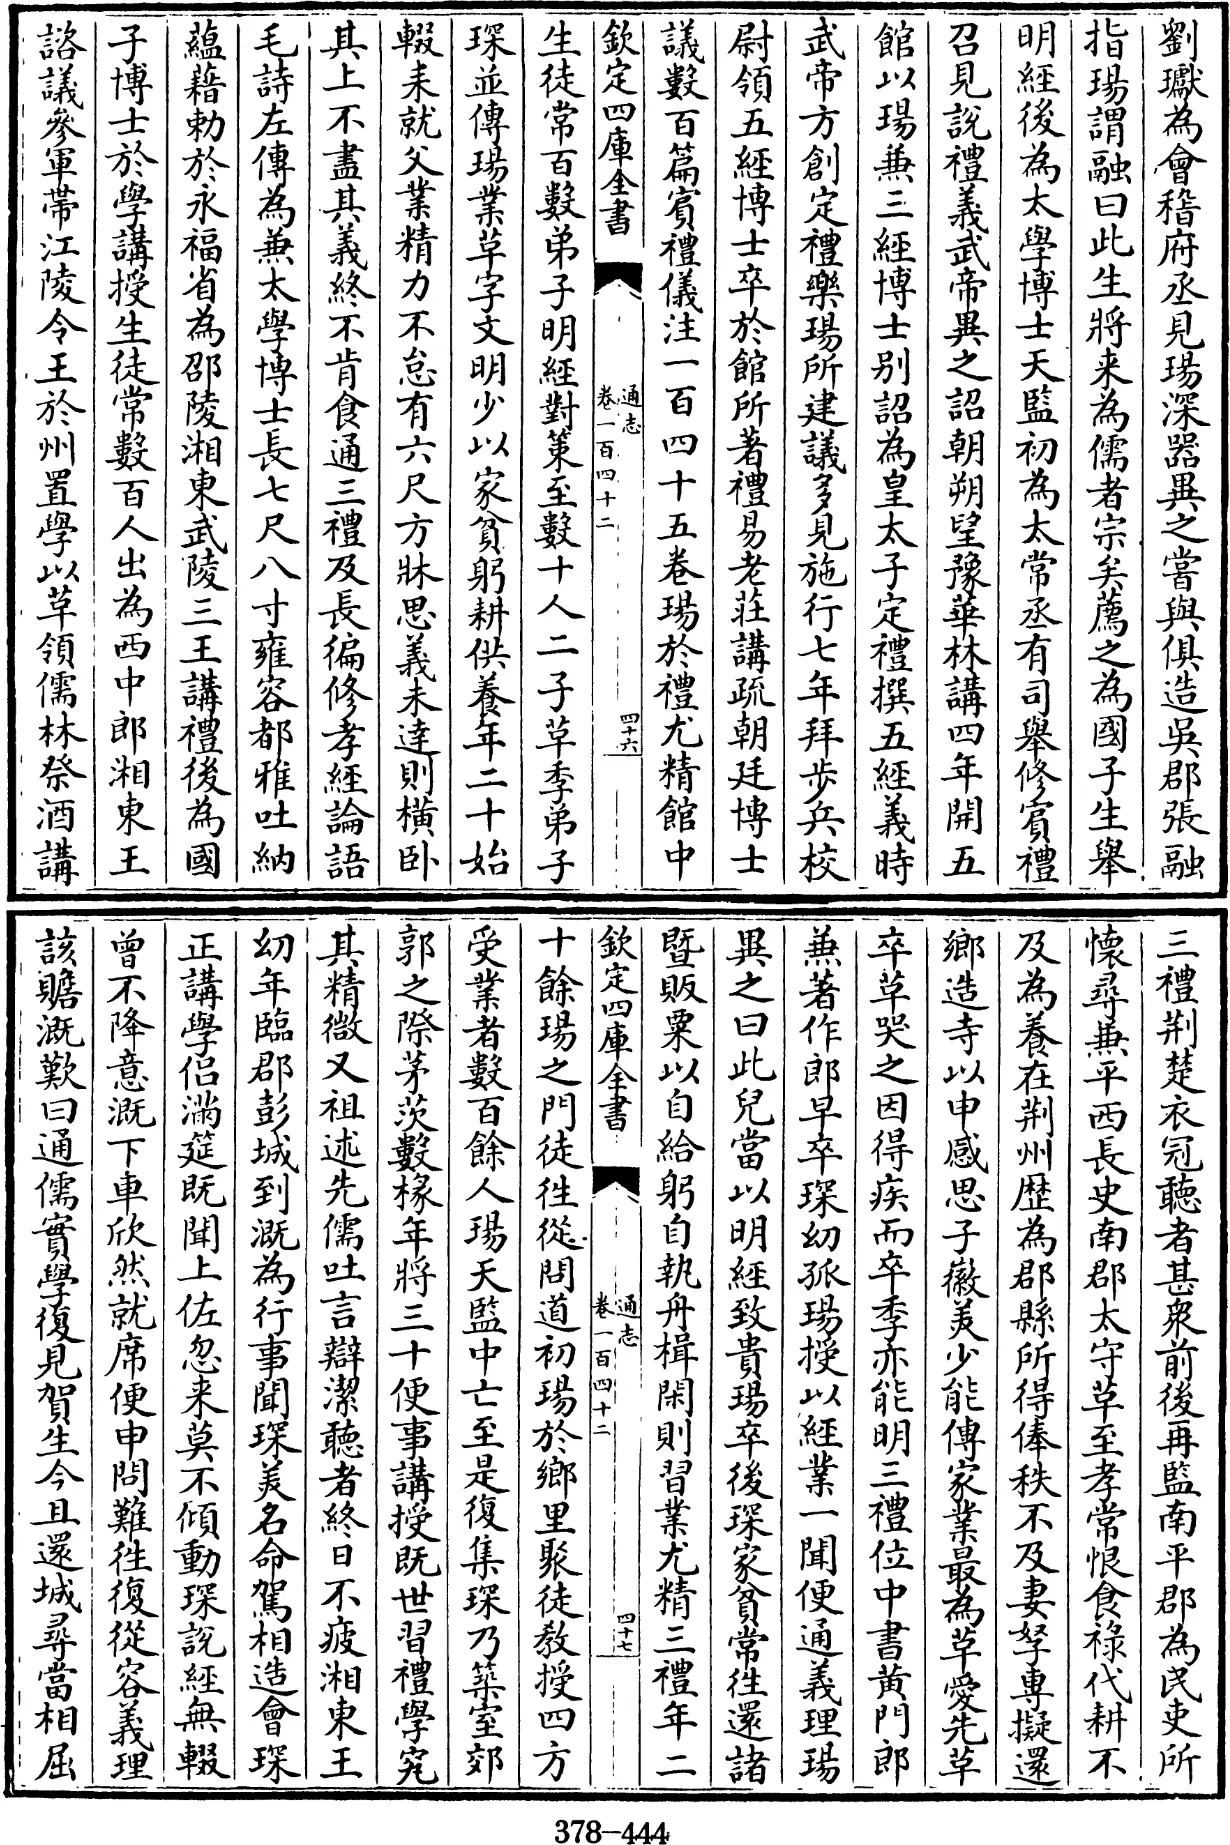 劉瓛為會稽府丞見瑒深器異之嘗與俱造吳郡張融
指瑒謂融曰此生將来為儒者宗矣薦之為國子生舉
明經後為太學博士天監初為太常丞有司舉修賓禮
召見說禮義武帝異之詔朝朔望豫華林講四年開五
館以瑒兼三經博士别詔為皇太子定禮撰五經義時
武帝方創定禮樂瑒所建議多見施行七年拜步兵校
尉領五經博士卒於館所著禮易老莊講疏朝廷博士
議數百篇賓禮儀注一百四十五卷瑒於禮尤精館中
欽定四庫全書 通志 卷一百四十二 四十六
生徒常百數弟子明經對策至數十人二子草季弟子
琛並傳瑒業草字文明少以家貧躬耕供養年二十始
輟耒就父業精力不怠有六尺方牀思義未達則橫卧
其上不盡其義終不肯食通三禮及長徧修孝經論語
毛詩左傳為兼太學博士長七尺八寸雍容都雅吐納
蘊藉勅於永福省為邵陵湘東武陵三王講禮後為國
子博士於學講授生徒常數百人出為西中郎湘東王
諮議參軍帶江陵令王於州置學以草領儒林祭酒講
三禮荆楚衣冠聽者甚衆前後再監南平郡為民吏所
懷尋兼平西長史南郡太守草至孝常恨食祿代耕不
及為養在荆州歴為郡縣所得俸秩不及妻孥專擬還
鄉造寺以申感思子徽美少能傳家業最為草愛先草
卒草哭之因得疾而卒季亦能明三禮位中書黄門郎
兼著作郎早卒琛幼孤瑒授以經業一聞便通義理瑒
異之曰此兒當以明經致貴瑒卒後琛家貧常往還諸
暨販粟以自給躬自執舟楫閑則習業尤精三禮年二
欽定四庫全書 通志 卷一百四十二 四十七
十餘瑒之門徒徃從問道初瑒於鄉里聚徒教授四方
受業者數百餘人瑒天監中亡至是復集琛乃築室郊
郭之際茅茨數椽年將三十便事講授既世習禮學究
其精微又祖述先儒吐言辯潔聽者終日不疲湘東王
幼年臨郡彭城到溉為行事聞琛美名命駕相造會琛
正講學侣滿筵既聞上佐忽来莫不傾動琛說經無輟
曾不降意溉下車欣然就席便申問難徃復從容義理
該贍溉歎曰通儒實學復見賀生今且還城尋當相屈
378-444